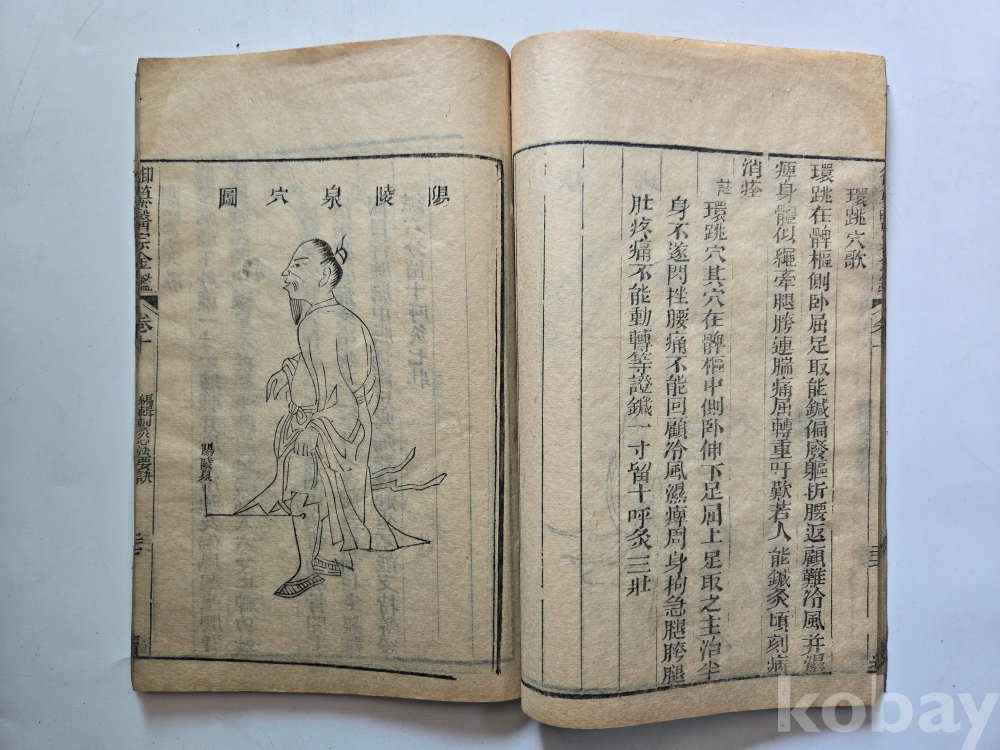 環跳穴歌
環跳在髀樞側臥屈足取能鍼偏廢軀折腰返顧難冷風并濕
痺身體似繩牽腿胯連腨痛屈轉重吁歎若人能鍼灸頃刻病
消痊
註環跳穴其穴在髀樞中側臥伸下足屈上足取之主治半
身不遂閃挫腰痛不能回顧冷風濕痺周身拘急腿胯腿
肚疼痛不能動轉等證鍼一寸留十呼灸三壯
陽陵泉穴圖
陽陵泉
御纂醫宗金鑑
卷十
編輯刺灸心法要訣
kobay